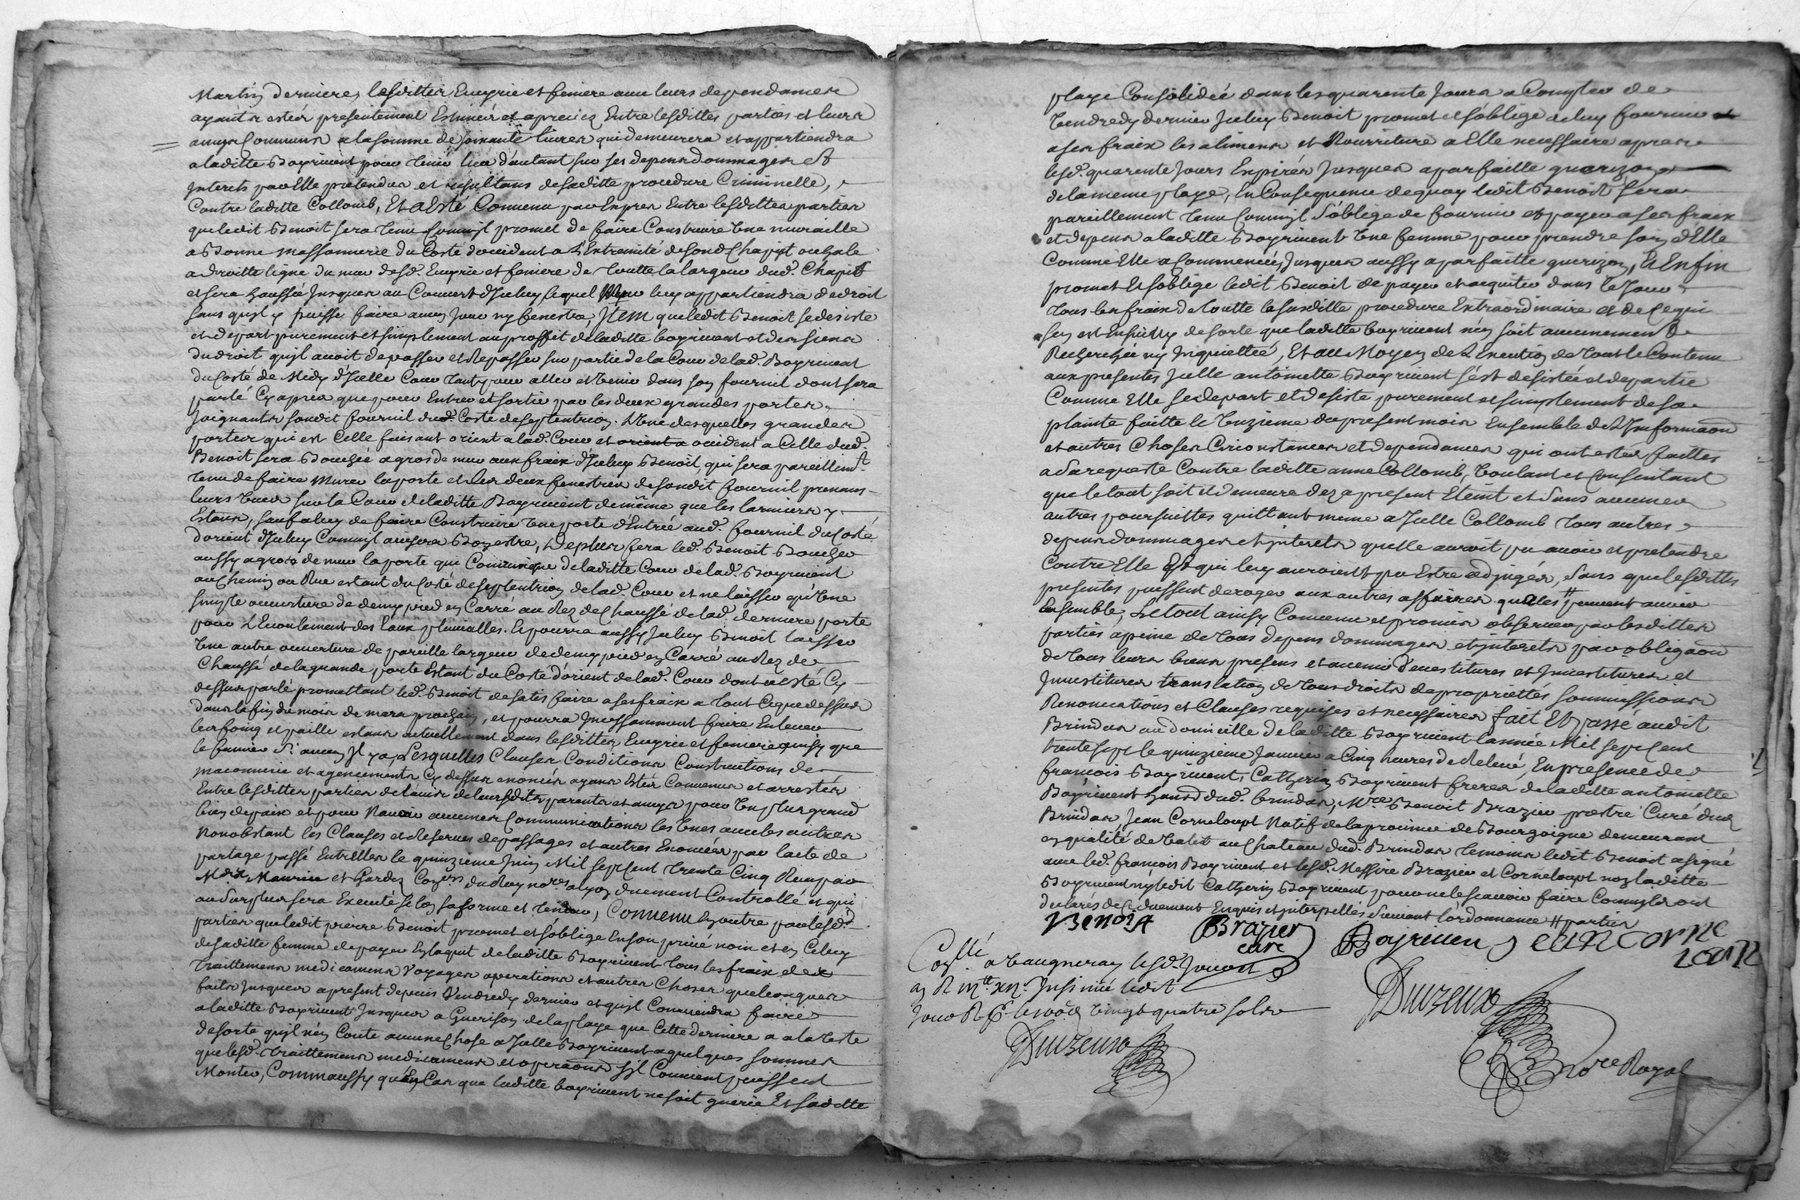 Martin derniere, lesdittes Ecuyrie et feniere avec leurs dependances
ayant estées presentement Estimées et apreciez Entre lesdittes parties et leurs
amys Communs a la somme de soixante livres qui demeurera et appartiendra
a laditte Boyrivent pour Tenir lieu d'autant sur ses depens dommages Et
Interets par Elle pretendus et resultans de saditte procedure Criminelle,
Contre laditte Collomb, Et a Esté Convenu par Exprez Entre lesdittes parties
que ledit Benoit sera tenu Comm'il promet de faire Construire Une muraille
a Bonne massonnerie du Costé d'occident a L'Extremité de son Chapit ou hale
a droitte ligne du mur desd. Ecuyrie et feniere de Toutte la largeur dud. Chapit
et sera haussée Jusques au Couvert d'Iceluy lequel mur luy appartiendra de droit
sans qu'il y puisse faire aucun Jour ny fenestre Item que ledit Benoit se desiste
et depart purement et simplement au proffit de laditte boyrivent et des siens
du droit qu'il avoit de passer et repasser sur partie de la Cour de lad. Boyrivent
du Costé de Midy d'Icelle Cour tant pour aller et Venir dans son fournil dont sera
parlé Cy apres que pour Entrer et sortir par les deux grandes portes
Joignants sondit fournil dud. Costé de septentrion. L'Une desquelles grandes
portes qui est Celle faisant orient a lad. Cour et orient a occident a Celle dud.
Benoit sera Bouchée a gros de mur aux fraix d'Iceluy Benoit, qui sera pareillemt
tenu de faire Murer la porte et Les deux fenestres de sondit fournil prenans
leurs Vues sur la Cour de laditte Boyrivent de même que les larmiers y
Estans, sauf a luy de faire Construire Une porte d'Entrée aud. fournil du Costé
d'orient d'Iceluy Comm'il avisera Bon estre, De plus sera led. Benoit Boucher
aussy a gros de mur la porte que Communique de laditte Cour de lad. Boyrivent
au Chemin ou Rue estant du Costé de septentrion de lad. Cour et ne laisser qu'Une
simple ouverture de demy pied en Carré au Rez de Chaussé de lad. derniere porte
pour L'Ecoulement des Eaux pluvialles. Et pourra aussy Iceluy Benoit laisser
Une autre ouverture de pareille largeur de demy pied en Carré au Rez de
Chaussé de la grande porte Estant du Costé d'orient de lad. Cour dont a esté Cy
dessus parlé promettant led. Benoit de satisfaire a ses fraix a Tout Ce que dessus
dans la fin du mois de mars prochain, et pourra Incessamment faire Enlever
les foing et paille estans actuellement dans lesdittes Ecuyrie et feniere ainsy que
le fumier s'i aucun Il y a, Lesquelles Clauses Conditions Constructions de
maconnerie et agencements Cy dessus enoncés ayans Estés Convenus et arrestés
Entre lesdittes parties de l'avis de leursdits parents et amys pour Un plus grand
bien de paix et pour N'avoir aucunes Communications les Unes avec les autres
Nonobstant les Clauses et Reserves de passages et autres Enoncées par l'acte de
partage passé Entr'Elles le quinzieme Juin Mil sept Cent Trente Cinq Reçu par
Mes Maurice et Gardez Conrs du Roy nores a Lyon duement Controllé et qui
au surplus sera Executé selon sa forme et Teneur, Convenu En outre par lesd.
parties que ledit pierre Benoit promet et s'oblige En son privé nom et en Celuy
de saditte femme de payer En l'acquit de laditte Boyrivent tous les fraix de
Traittemens medicamens Voyages operations et autres Choses quelconques
faits Jusques a present depuis Vendredy dernier et qu'il Conviendra faire
a laditte Boyrivent Jusques a Guerison de la playe que Cette derniere a a la teste
de sorte qu'il n'en Coute aucune Chose a Icelle Boyrivent a quelques sommes
que lesd. Traittemens medicamens et operaons s'il Convient puissent
Monter, Comm'aussy qu'En Cas que laditte boyrivent ne soit guerie Et saditte
playe Consolidée dans les quarente Jours a Compter de
Vendredy dernier Iceluy Benoit promet et s'oblige de luy fournir
a ses fraix les alimens et Nourriture a Elle necessaire apres
lesd. quarente Jours Expirés Jusques a parfaitte guerizon
de la meme playe, En Consequence de quoy ledit Benoit sera
pareillement tenu Comm'il s'oblige de fournir et payer a ses fraix
et depens a laditte Boyrivent Une femme pour prendre soin d'Elle
Comme Elle a Commencée, Jusques aussy a parfaitte guerizon, Et Enfin
promet Et s'oblige ledit Benoit de payer et acquiter dans le Jour
tous les fraix de Toutte la susditte procedure Extraordinaire et de Ce qui
s'en est Ensuivy de sorte que laditte boyrivent n'en soit aucunement
Recherchée ny Inquiettée, Et au Moyen de L'Execution de Tout le Contenu
aux presentes Icelle antoinette Boyrivent s'est desistée et departie
Comme Elle se depart et desiste purement et simplement de sa
plainte faitte le Unzieme du present mois Ensemble de L'Informaon
et autres Choses Circonstances et dependances qui ont estés faittes
a sa requeste Contre laditte anne Collomb, Voulant et Consentant
que le tout soit et demeure dez a present Eteint et sans aucunes
autres poursuittes quittant meme a Icelle Collomb tous autres
depens dommages et interets qu'elle auroit pu avoir et pretendre
Contre Elle Et qui luy auroient pu Estre adjugés, sans que lesdittes
presentes puissent deroger aux autres affaires qu'elles # peuvent avoir
Ensemble, Le tout ainsy Convenu et promis observer par lesdittes
parties a peine de Tous depens dommages et interets par obligaon
de Tous leurs biens presens et avenir d'evestitures et Investitures et
Investitures translation de tous droits de proprietés soummissions
Renonciations et Clauses requises et necessaires fait Et passé audit
Brindas au domicille de laditte Boyrivent l'année Mil sept Cent
trente sept le quinzieme Janvier a Cinq heures de Relevé, En presence de
françois Boyrivent, Catherin Boyrivent freres de laditte antoinette
Boyrivent habitt dud. brindas, Mre Benoit Brazier prestre Curé dud.
Brindas Jean Corneloupt Natif de la province de Bourgoigne demeurant
en qualité de Valet au Chateau dud. Brindas Temoins ledit Benoit a signé
avec led. françois Boyrivent et lesd. Messire Brazier et Corneloupt non laditte
Boyrivent ny ledit Catherin Boyrivent pour ne le sçavoir faire Comm'ils ont
declarés de Ce duement Enquis et interpellés suivant l'ordonnance # parties
Benoit Brazier curé Boyriven Jean Corne loup
Conllé a Vaugneray led. Jour
Reçu vingt quatre sols
Duvzeuxo
Duvzeuxo
nore Royal